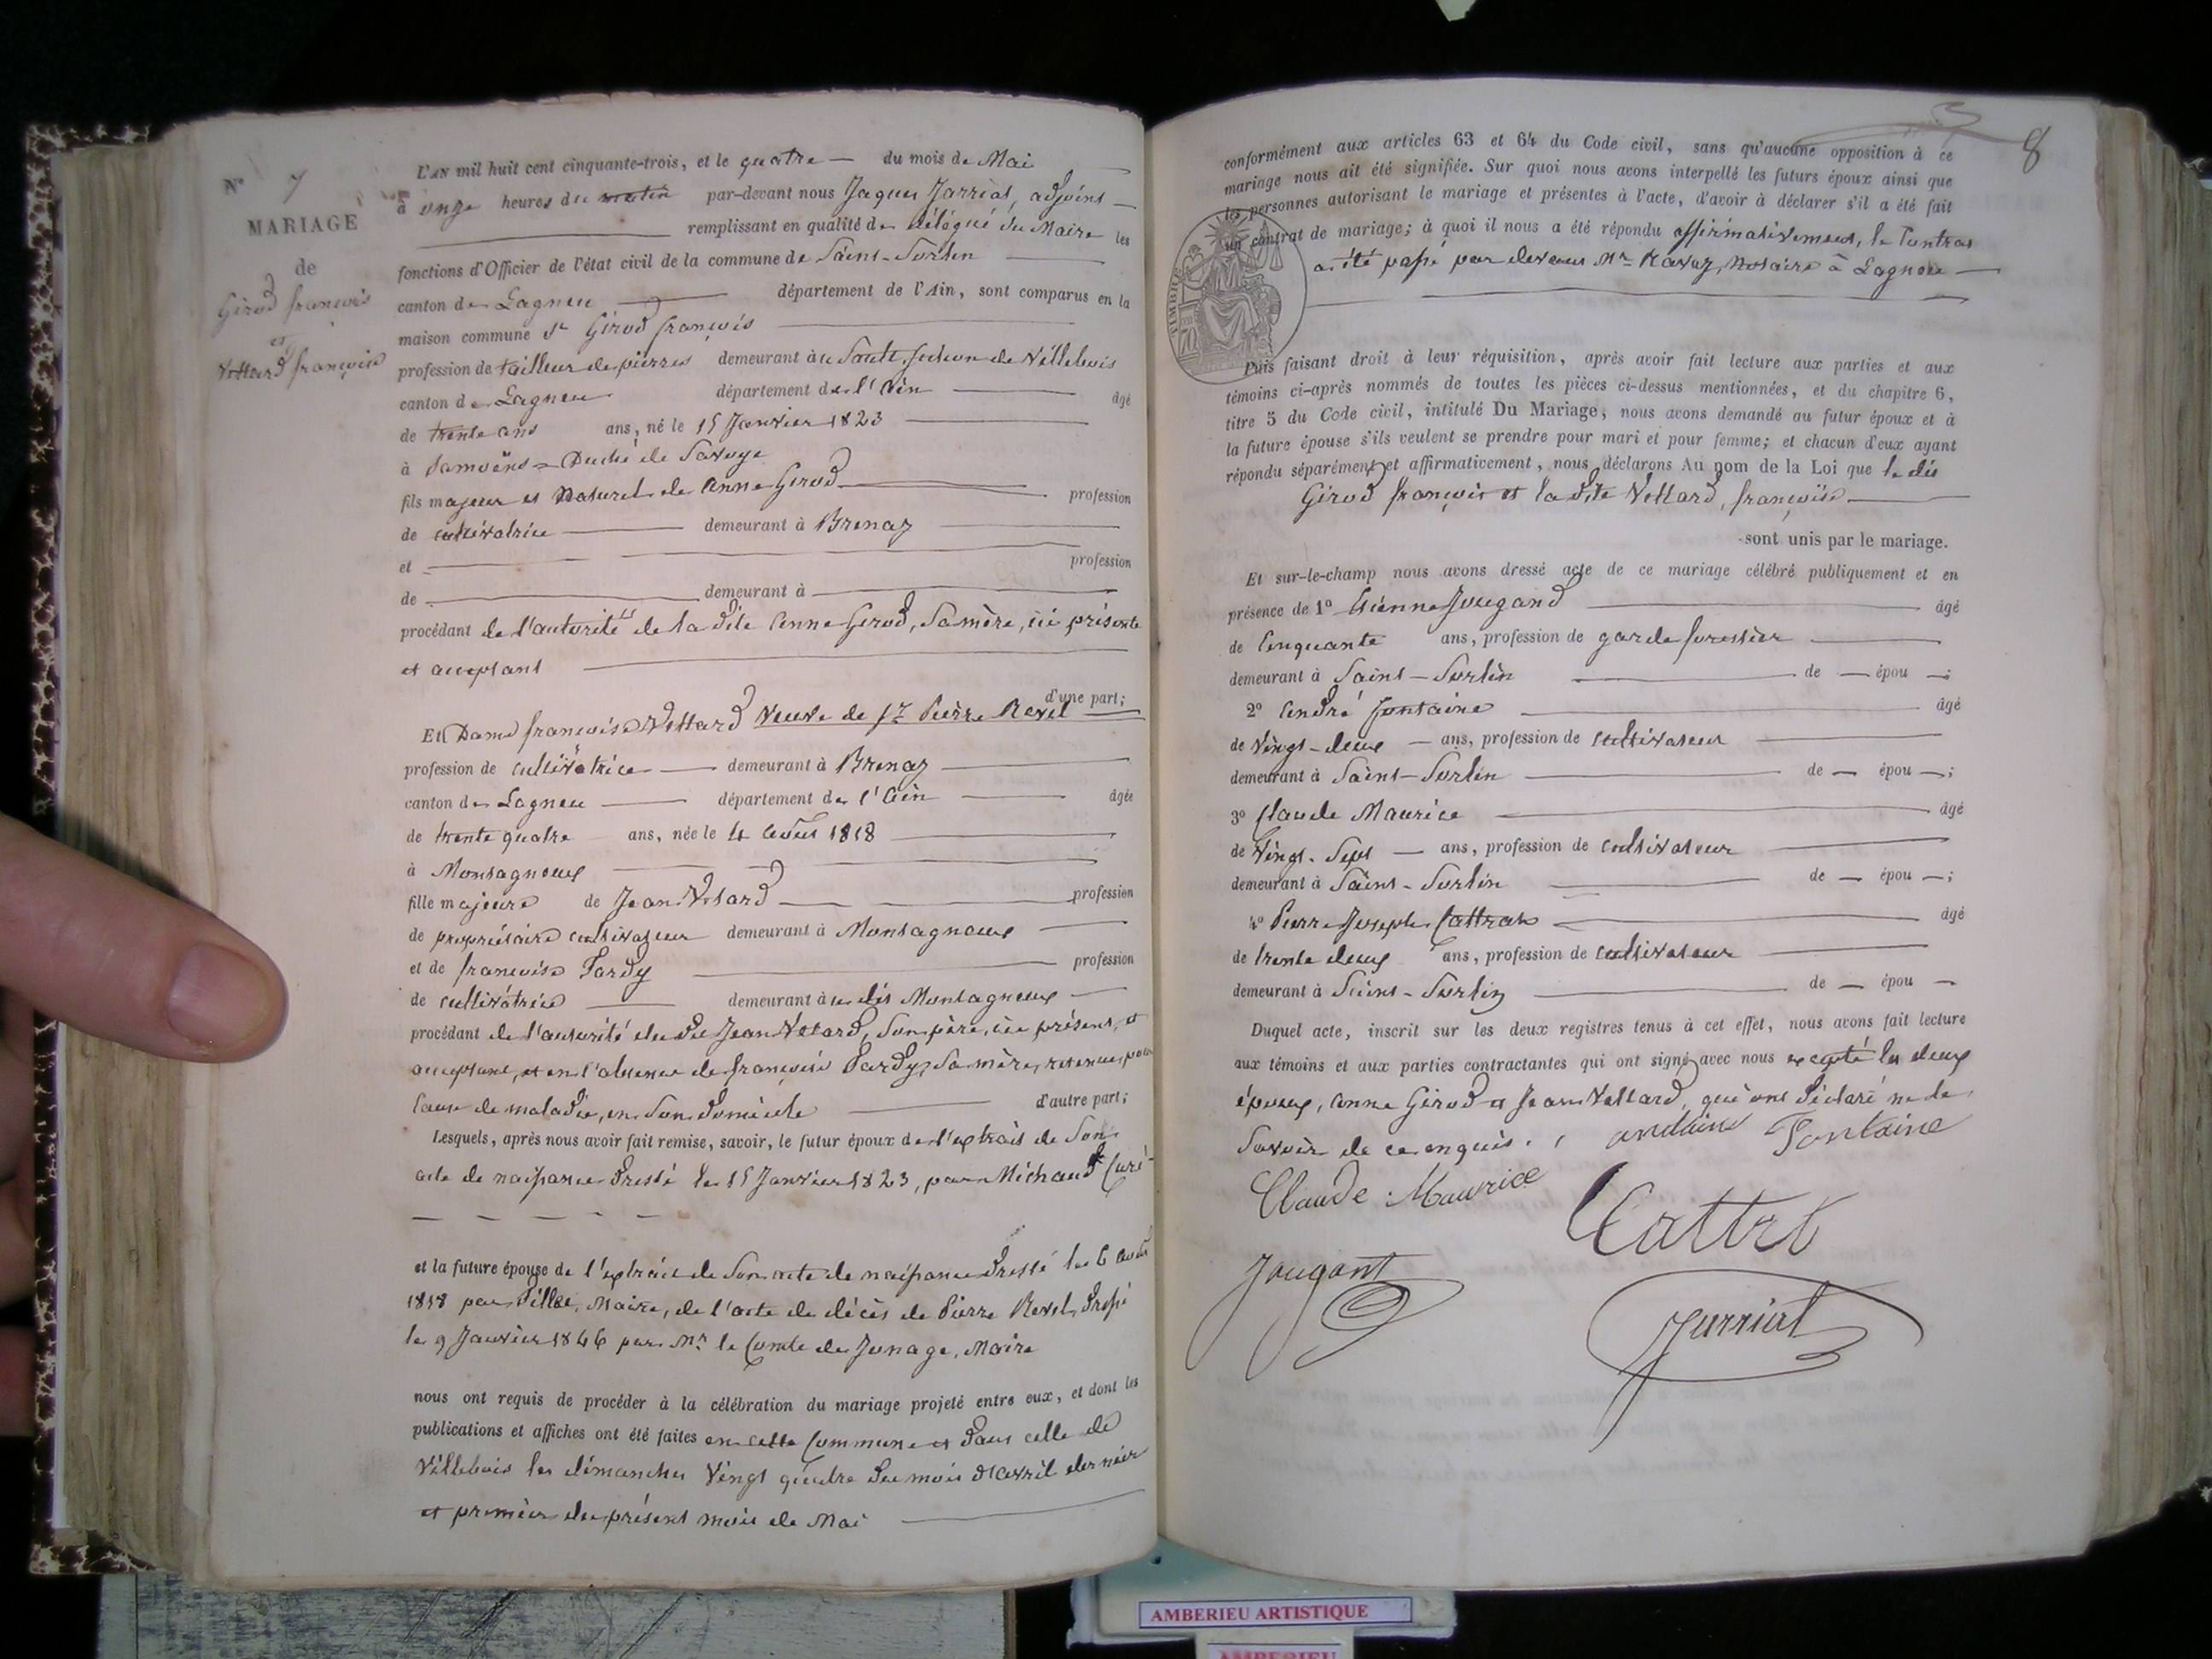 N° 7
MARIAGE
de
Girod françois
et
Vettard françoise
L'AN mil huit cent cinquante-trois, et le quatre — du mois de Mai
à onze heures du matin par-devant nous Jaques Jarriat, adjoint
remplissant en qualité de délégué du Maire les
fonctions d'Officier de l'état civil de la commune de Saint-Sorlin
canton de Lagneu département de l'Ain, sont comparus en la
maison commune Sr Girod françois
profession de tailleur de pierres demeurant à Sault, section de Villebois
canton de Lagneu département de l'Ain âgé
de trente ans ans, né le 15 Janvier 1823
à Samoëns = Duché de Savoye
fils majeur et Naturel de Anne Girod profession
de cultivatrice demeurant à Brenaz
et profession
de demeurant à
procédant de l'autorité de la dite Anne Girod, Sa mère, ici présente
et acceptant
d'une part;
Et Dame françoise Vettard Veuve de Sr Pierre Revel
profession de cultivatrice demeurant à Brenaz
canton de Lagneu département de l'Ain âgée
de trente quatre ans, née le 4 Août 1818
à Montagneux
fille majeure de Jean Vetard profession
de propriétaire cultivateur demeurant à Montagneux
et de françoise Tardy profession
de cultivatrice demeurant au dit Montagneux
procédant de l'autorité du dit Jean Vetard, Son père, ici présent, et
acceptant, et en l'absence de françoise Tardy, Sa mère, retenue pour
Cause de maladie, en Son Domicile d'autre part;
Lesquels, après nous avoir fait remise, savoir, le futur époux de l'extrait de Son
acte de naissance Dressé le 15 Janvier 1823, par Michaud Curé
et la future épouse de l'extrait de Son acte de naissance Dressé le 6 Août
1818 par Maire, de l'acte de décès de Pierre Revel, Dressé
le 9 Janvier 1846 par Mr le Comte de Jonage, Maire
nous ont requis de procéder à la célébration du mariage projeté entre eux, et dont les
publications et affiches ont été faites en cette Commune et Dans celle de
Villebois les dimanches Vingt quatre Du mois d'Avril dernier
et premier du présent mois de Mai
8
conformément aux articles 63 et 64 du Code civil, sans qu'aucune opposition à ce
mariage nous ait été signifiée. Sur quoi nous avons interpellé les futurs époux ainsi que
les personnes autorisant le mariage et présentes à l'acte, d'avoir à déclarer s'il a été fait
un contrat de mariage; à quoi il nous a été répondu affirmativement, le Contrat
a été passé par devant Mr Ravaz, Notaire à Lagneu
TIMBRE
Puis faisant droit à leur réquisition, après avoir fait lecture aux parties et aux
témoins ci-après nommés de toutes les pièces ci-dessus mentionnées, et du chapitre 6,
titre 5 du Code civil, intitulé Du Mariage, nous avons demandé au futur époux et à
la future épouse s'ils veulent se prendre pour mari et pour femme; et chacun d'eux ayant
répondu séparément et affirmativement, nous déclarons Au nom de la Loi que le dit
Girod françois et la dite Vettard, françoise
sont unis par le mariage.
Et sur-le-champ nous avons dressé acte de ce mariage célébré publiquement et en
présence de 1° Etienne Jougand âgé
de Cinquante ans, profession de garde forestier
demeurant à Saint-Sorlin de — épou —;
2° André fontaine âgé
de Vingt-deux — ans, profession de Cultivateur
demeurant à Saint-Sorlin de — épou —;
3° Claude Maurice âgé
de Vingt-Sept — ans, profession de Cultivateur
demeurant à Saint-Sorlin de — épou —;
4° Pierre Joseph Cattrat âgé
de trente deux ans, profession de Cultivateur
demeurant à Saint-Sorlin de — épou —
Duquel acte, inscrit sur les deux registres tenus à cet effet, nous avons fait lecture
aux témoins et aux parties contractantes qui ont signé avec nous excepté les deux
époux, Anne Girod et Jean Vettard, qui ont Déclaré ne le
Savoir de ce enquis.
Fontaine
Claude Maurice
Cattrt
Jougant
Jarriat
AMBERIEU ARTISTIQUE
AMBERIEU